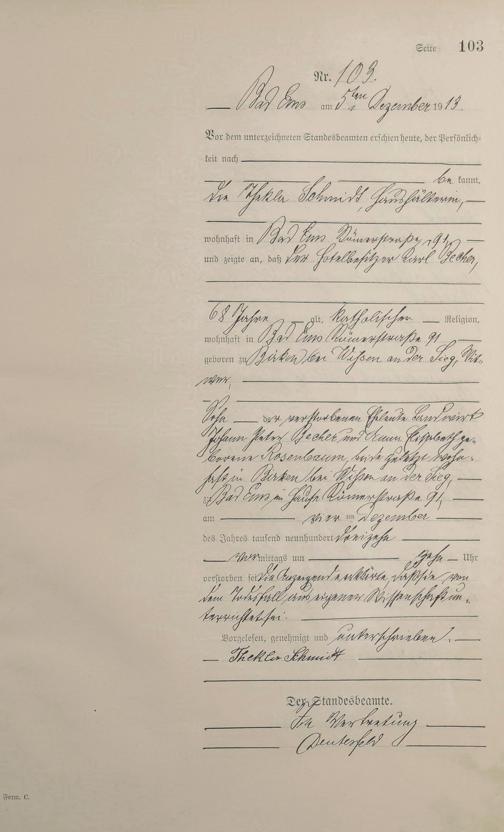 Seite 103
Nr. 103.
Bad Ems am 5ten Dezember 1913
Vor dem unterzeichneten Standesbeamten erschien heute, der Persönlich-
keit nach
be kannt,
die Thekla Schmidt, Haushälterin,
wohnhaft in Bad Ems Römerstraße 91,
und zeigte an, daß der Hotelbesitzer Karl Becher,
68 Jahre alt, katholischer Religion,
wohnhaft in Bad Ems Römerstraße 91
geboren zu Birken bei Wissen an der Sieg, Wit-
wer,
Sohn der verstorbenen Eheleute Landwirt
Johann Peter Becher und Anna Elisabeth ge-
borene Rosenbaum, beide zuletzt wohn-
haft in Birken bei Wissen an der Sieg,
zu Bad Ems, im Hause Römerstraße 91,
am vier ten Dezember
des Jahres tausend neunhundert dreizehn
vormittags um zehn Uhr
verstorben sei. Die Anzeigende erklärte, daß sie von
dem Todesfall aus eigener Wissenschaft un-
terrichtet sei.
Vorgelesen, genehmigt und unterschrieben.
Thekla Schmidt
Der Standesbeamte.
In Vertretung
Form. C.